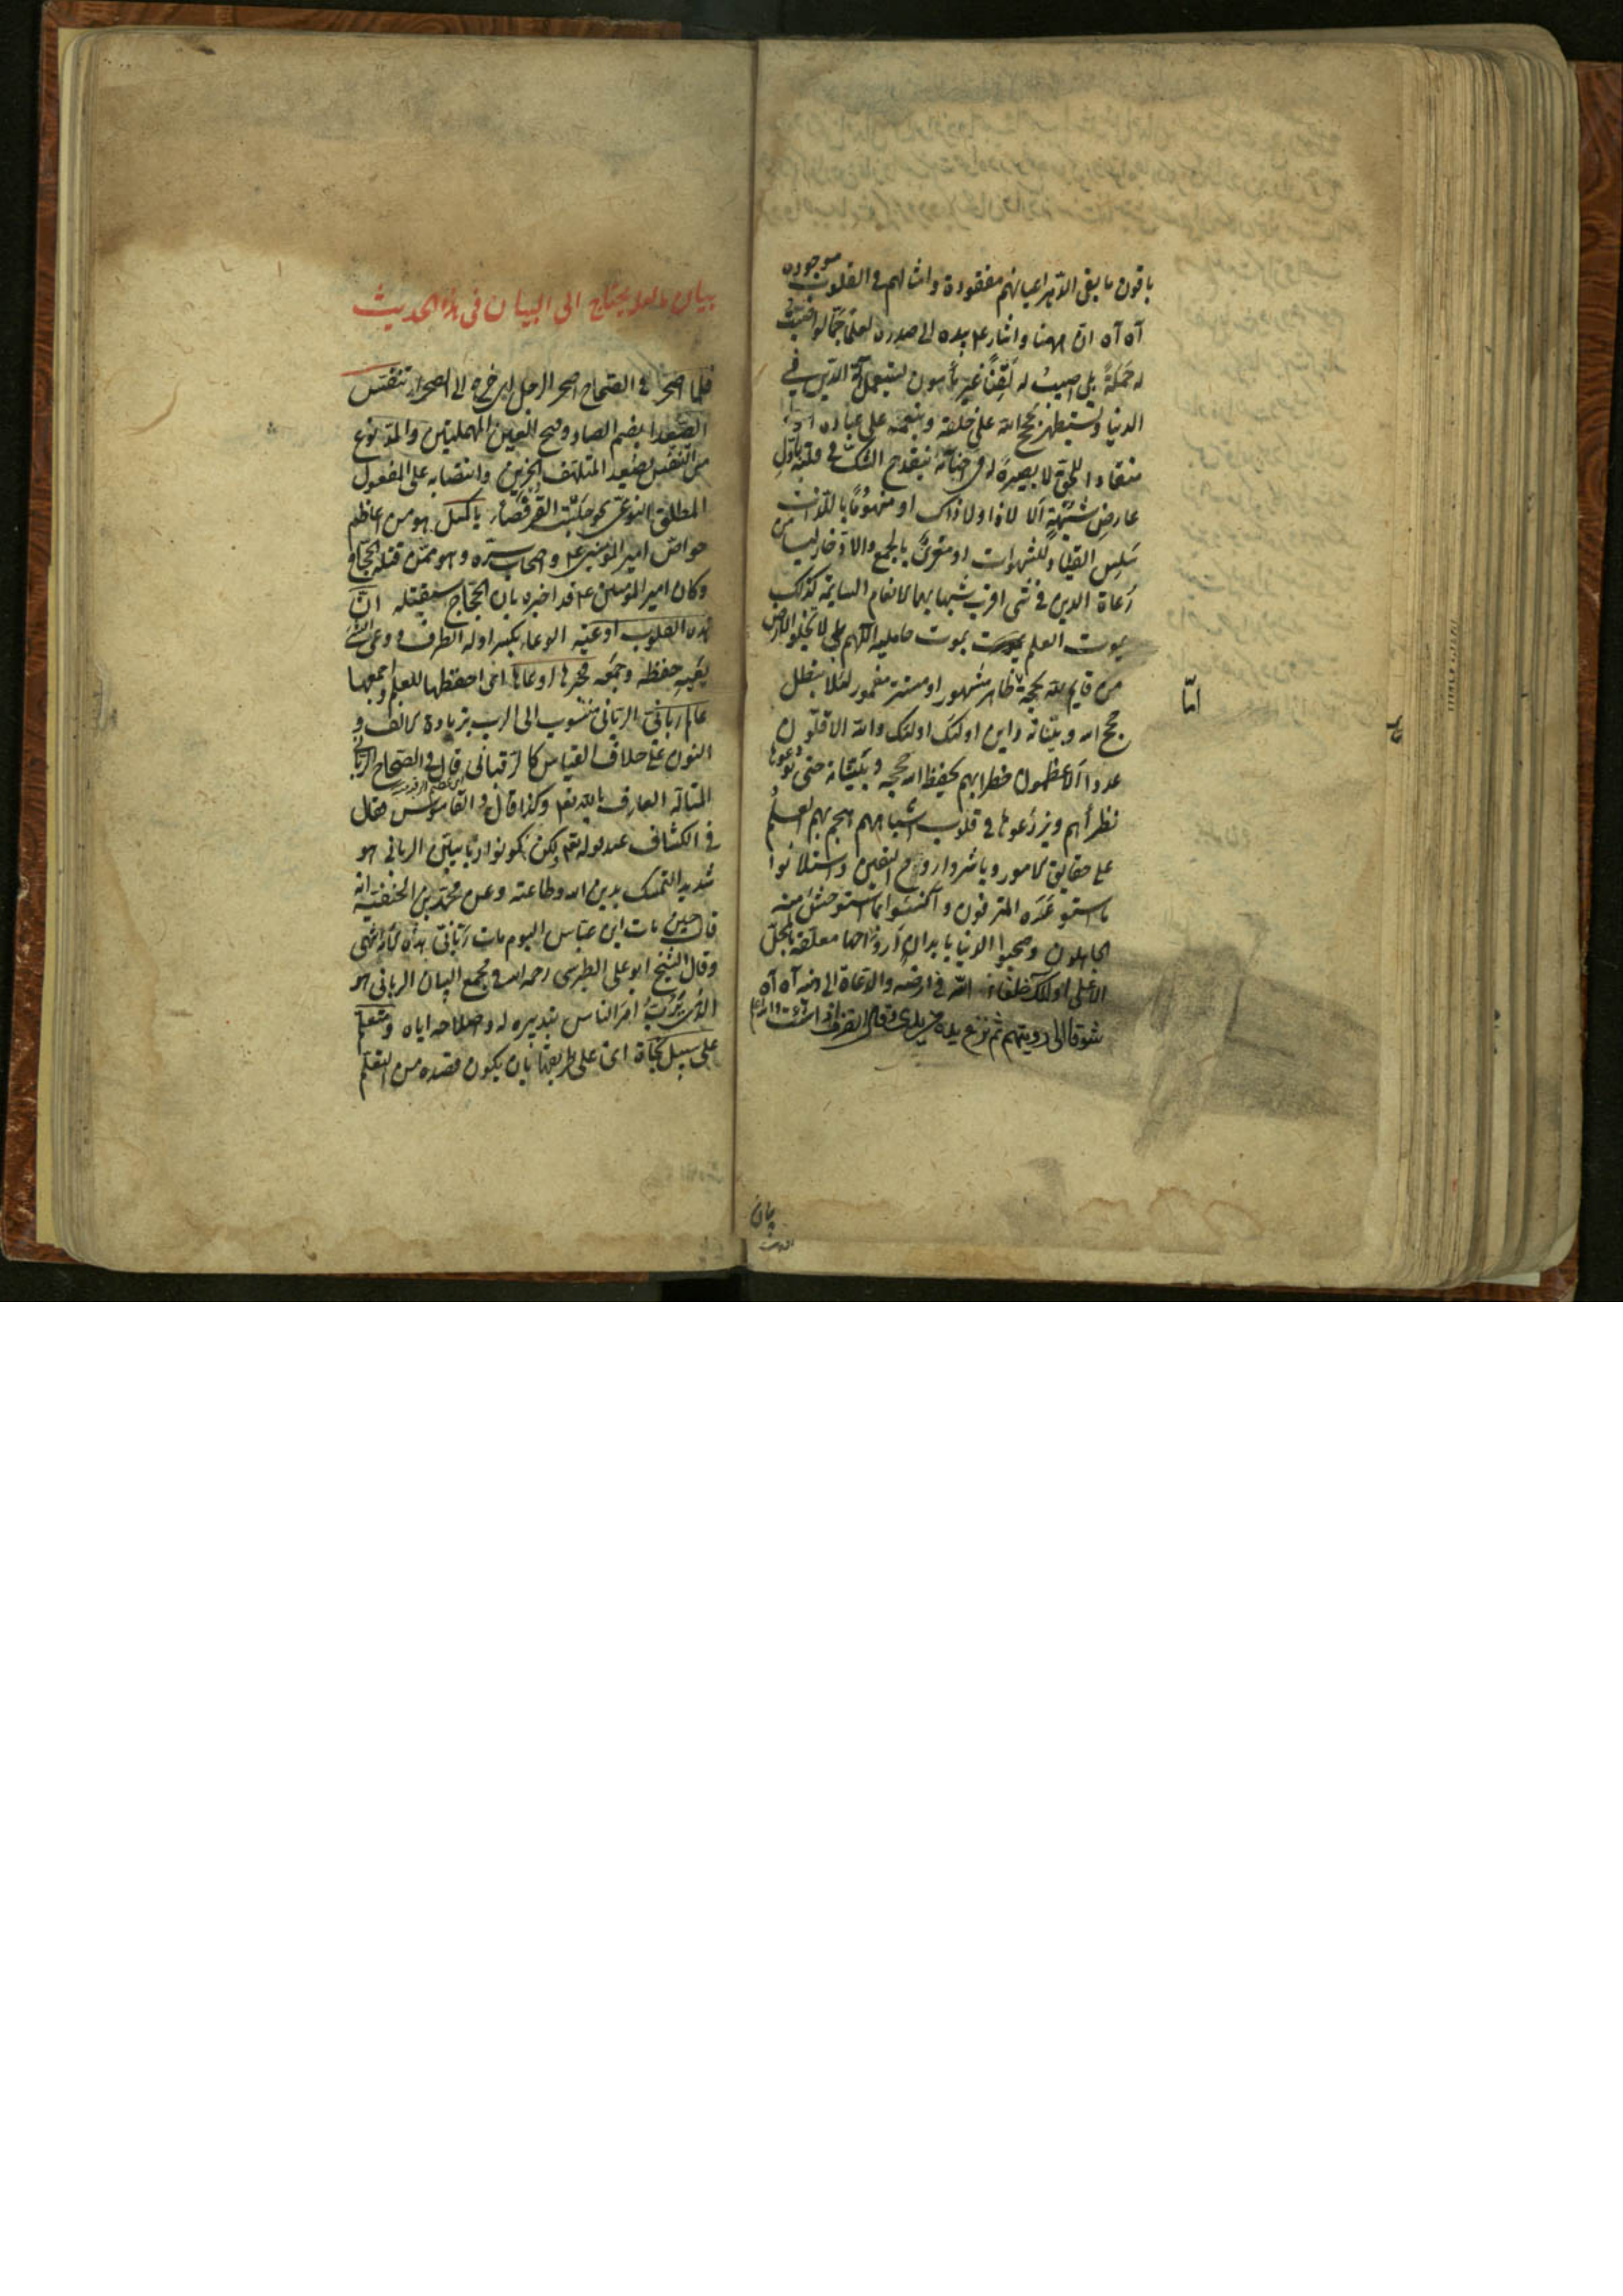 باقون ما بقی الدهر اعیانهم مفقودة و امثالهم فی القلوب موجوده
آه آه ان ههنا و اشار ع بیده الی صدره لعلما جما لو اصبت
له حَمَلَةً بلی اصیب له لَقِناً غیر مأمون یستعمل آلة الدین فی
الدنیا و یستظهر بحجج الله علی خلقه و بنعمه علی عباده او
منقادا للحق لا بصیرة له فی احنائه ینقدح الشک فی قلبه باول
عارضٍ من شبهة الا لا ذا ولا ذاک او منهوماً باللذات
سَلِس القیاد للشهوات او مغرًی بالجمع والادخار لیسا من
رُعاة الدین فی شی اقرب شبها بهما الانعام السایمة کذلک
یموت العلم بموت حاملیه اللهم بلی لا تخلو الارض
من قایم لله بحجة ظاهر مشهور او مستتر مغمور لئلا یبطل
حجج الله و بیناته و این اولئک اولئک والله الاقلون
عددا الاعظمون خطرا بهم یحفظ الله حججه و بیناته حتی یودعوها
نظرأهم و یزرعوها فی قلوب اشباههم هجم بهم العلم
علی حقایق الامور و باشروا روح الیقین و استلانوا
ما استوعره المترفون و آنسوا بما استوحش منه
الجاهلون و صحبوا الدنیا بابدان ارواحها معلقة بالمحل
الاعلی اولئک خلفاء الله فی ارضه والدعاة الی دینه آه آه
شوقا الی رویتهم ثم نزع یده من یدی و قال انصرف اذا شئت
اما
بیان
بیان ما لعله یحتاج الی البیان فی هذا الحدیث
فلما اصحر فی الصحاح اصحر الرجل ای خرج الی الصحراء تنفس
الصعداء بضم الصاد و فتح العین المهملتین و المد نوع
من التنفس یصعده المتلهف الحزین و انتصابه علی المفعول
المطلق النوعی نحو جلست القرفصاء یا کمیل هو من اعاظم
خواص امیر المومنین ع و اصحاب سره و هو ممن قتله الحجاج
و کان امیر المومنین ع قد اخبره بان الحجاج سیقتله ان
هذه القلوب اوعیة الوعاء بکسر اوله الظرف و وعی الشی
یعیه حفظه و جمعه فخیرها اوعاها ای احفظها للعلم و اجمعها
عالم ربانی الربانی منسوب الی الرب بزیادة الالف و
النون علی خلاف القیاس کالرقبانی قال فی الصحاح الربانی
المتأله العارف بالله تعم و کذا قال فی القاموس و قال
فی الکشاف عند قوله تعم و لکن کونوا ربانیین الربانی هو
شدید التمسک بدین الله و طاعته و عن محمد بن الحنفیة انه
قال حین مات ابن عباس الیوم مات ربانی هذه الامة انتهی
و قال الشیخ ابو علی الطبرسی رحمه الله فی مجمع البیان الربانی هو
الذی یَرُبُّ امر الناس بتدبیره له و اصلاحه ایاه و متعلم
علی سبیل نجاة ای علی طریقها بان یکون قصده من التعلم